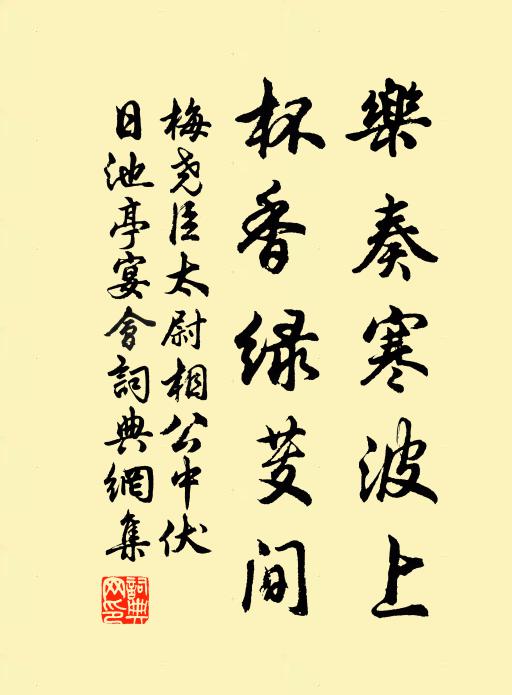 樂奏寒波上
杯香绿芰间
梅尧臣太尉相公中伏
日池亭宴會詞典網集
詞典网印